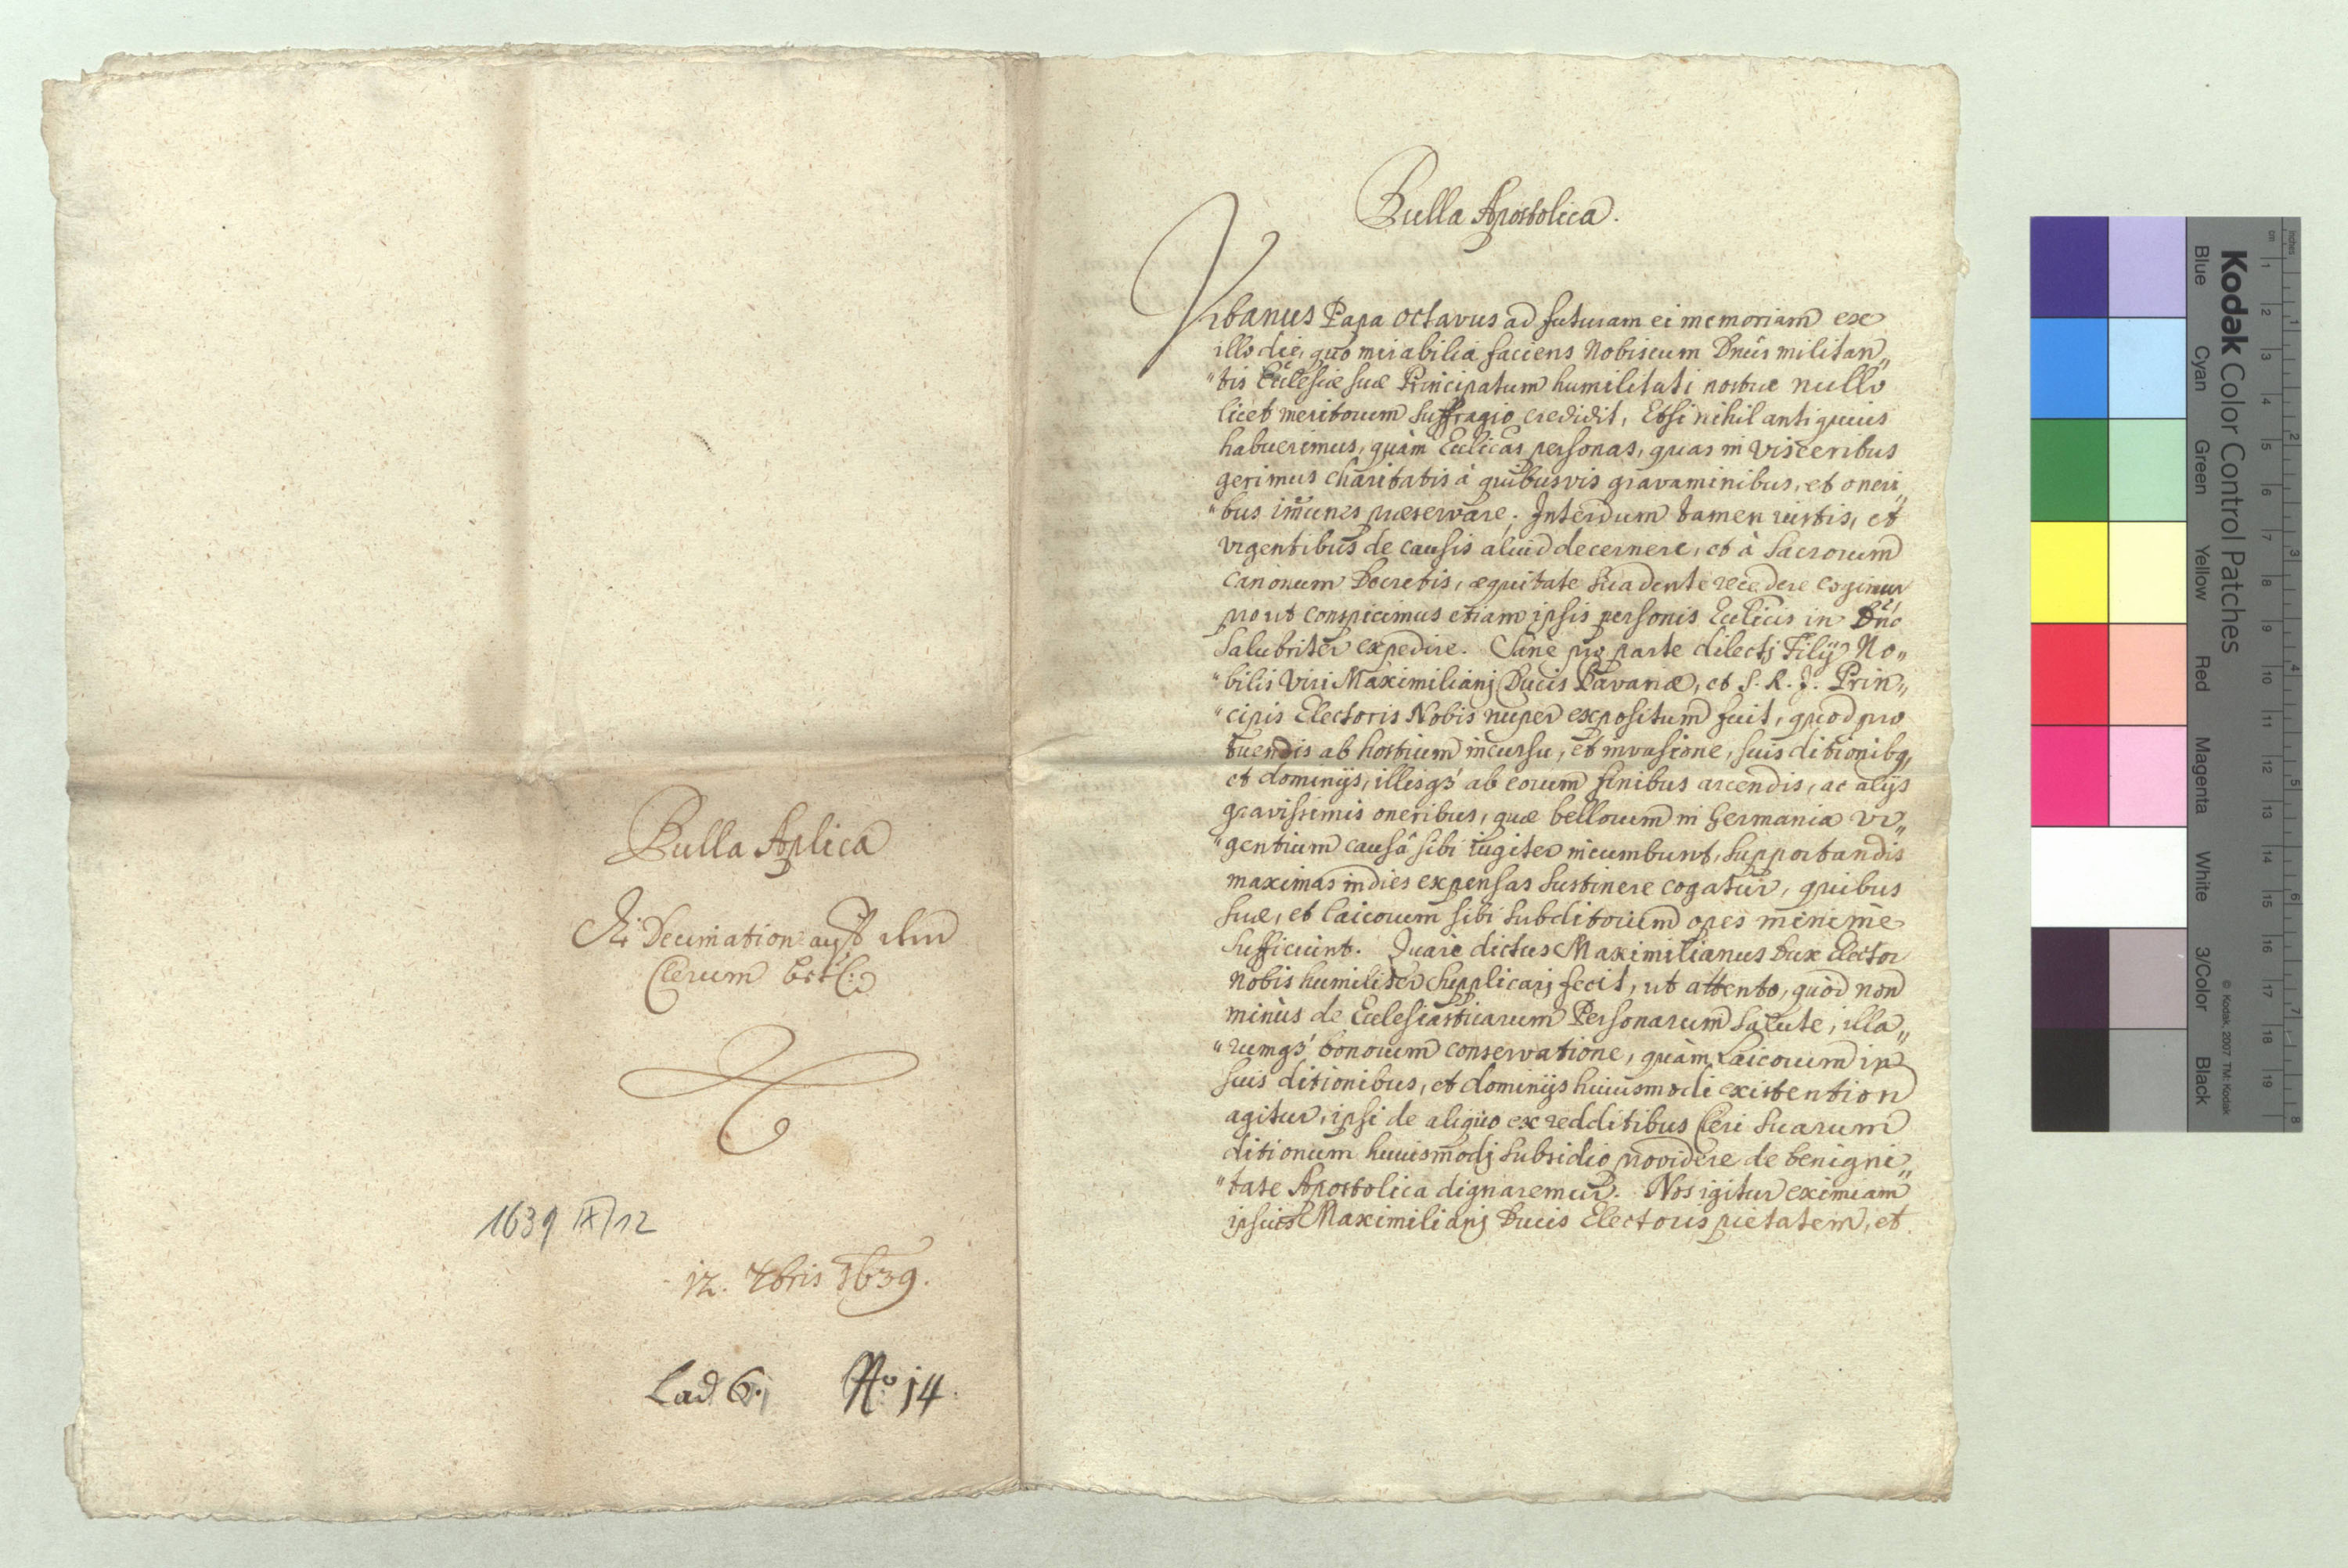 Bulla Aplica
Die Decimation auff den
Clerum betr:
1639 IX/12
12. 7bris 1639.
Lad 6. No 14.
Bulla Apostolica.
Vrbanus Papa octavus ad futuram ei memoriam ex
illo die, quo mirabilia faciens Nobiscum Dnūs militan„
„tis Ecclesiæ suæ Principatum humilitati nostræ nullo
licet meritorum suffragio credidit, Etsi nihil antiquius
habuerimus, quàm Ecclīcas personas, quas in visceribus
gerimus charitatis à quibusvis gravaminibus, et oneri„
„bus im̄unes præservare. Interdum tamen iustis, et
vrgentibus de causis aliud decernere, et à Sacrorum
Canonum Decretis, æquitate suadente recedere cogimur
prout conspicimus etiam ipsis personis Ecclīcis in Dnō
salubriter expedire. Sane pro parte dilectj Filÿ No„
„bilis Viri Maximilianj Ducis Bavariæ, et S. R. J. Prin„
„cipis Electoris Nobis nuper expositum fuit, quod pro
tuendis ab hostium incursu, et invasione, suis ditionibq,
et dominÿs, illisq3 ab eorum finibus arcendis, ac alÿs
gravissimis oneribus, quæ bellorum in Germania vr„
„gentium causâ sibi iugiter incumbunt, supportandis
maximas indies expensas sustinere cogatur, quibus
suæ, et laicorum sibi subditorum opes minimè
sufficiunt. Quare dictus Maximilianus Dux Elector
nobis humiliter supplicarj fecit, ut attento, quòd non
minùs de Ecclesiasticarum Personarum salute, illa„
„rumq3 bonorum conservatione, quàm Laicorum in
suis ditionibus, et dominÿs huiusmodi existention
agitur, ipsi de aliquo ex redditibus Cleri suarum
ditionum huiusmodj subsidio providere de benigni„
„tate Apostolica dignaremur. Nos igitur eximiam
ipsius Maximilianj Ducis Electoris pietatem, et
Kodak Color Control Patches
Blue Cyan Green Yellow Red Magenta White 3/Color Black
© Kodak, 2007 TM: Kodak
cm 1 2 3 4 5 6 7 8 9 10 11 12 13 14 15 16 17 18 19
inches 1 2 3 4 5 6 7 8